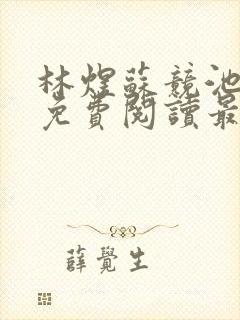 林煜蘇競池
免費閱讀最
薛覺生